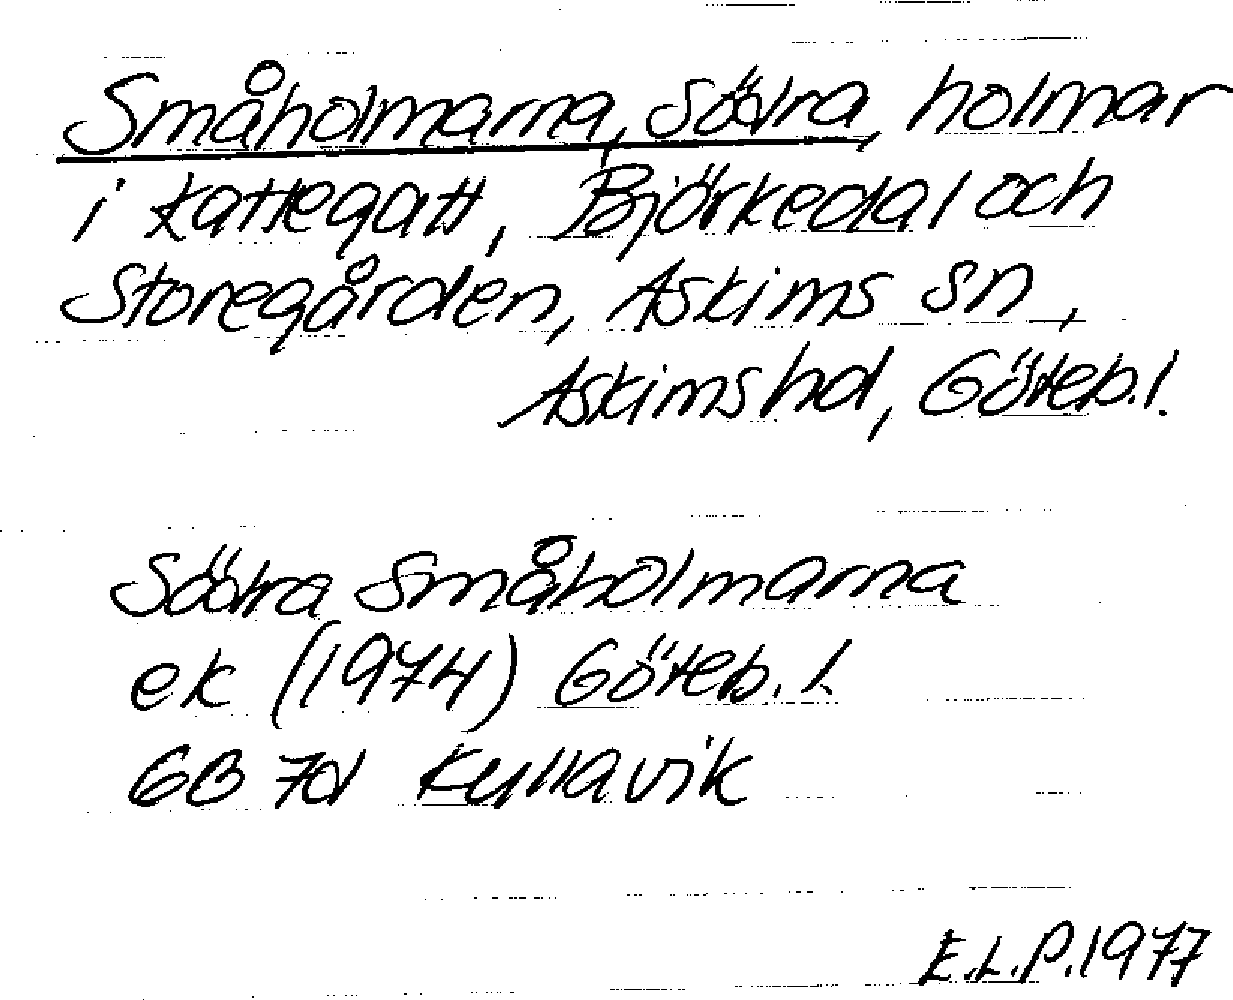 Småholmarna, Södra, holmar
i Kattegatt, Björkedal och
Storegården, Askims sn,
Askims hd, Göteb. l.
Södra Småholmarna
ek (1974) Göteb. l.
6B 7d Kullavik
E.L.P. 1977